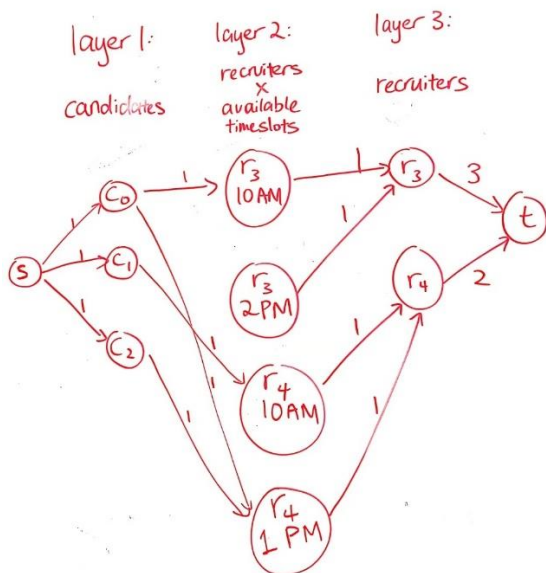 layer 1:
candidates
layer 2:
recruiters
x
available
timeslots
layer 3:
recruiters
s
1
1
1
c0
c1
c2
1
1
1
1
r3
10AM
r3
2PM
r4
10AM
r4
1 PM
1
1
1
1
r3
r4
3
2
t